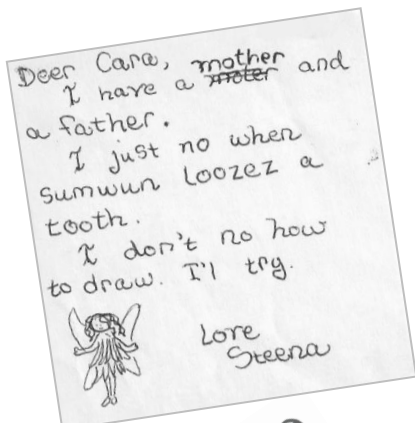 Deer Cara,
I have a mother and
a father.
I just no when
sumwun loozez a
tooth.
I don't no how
to draw. I'l try.
Love
Steena